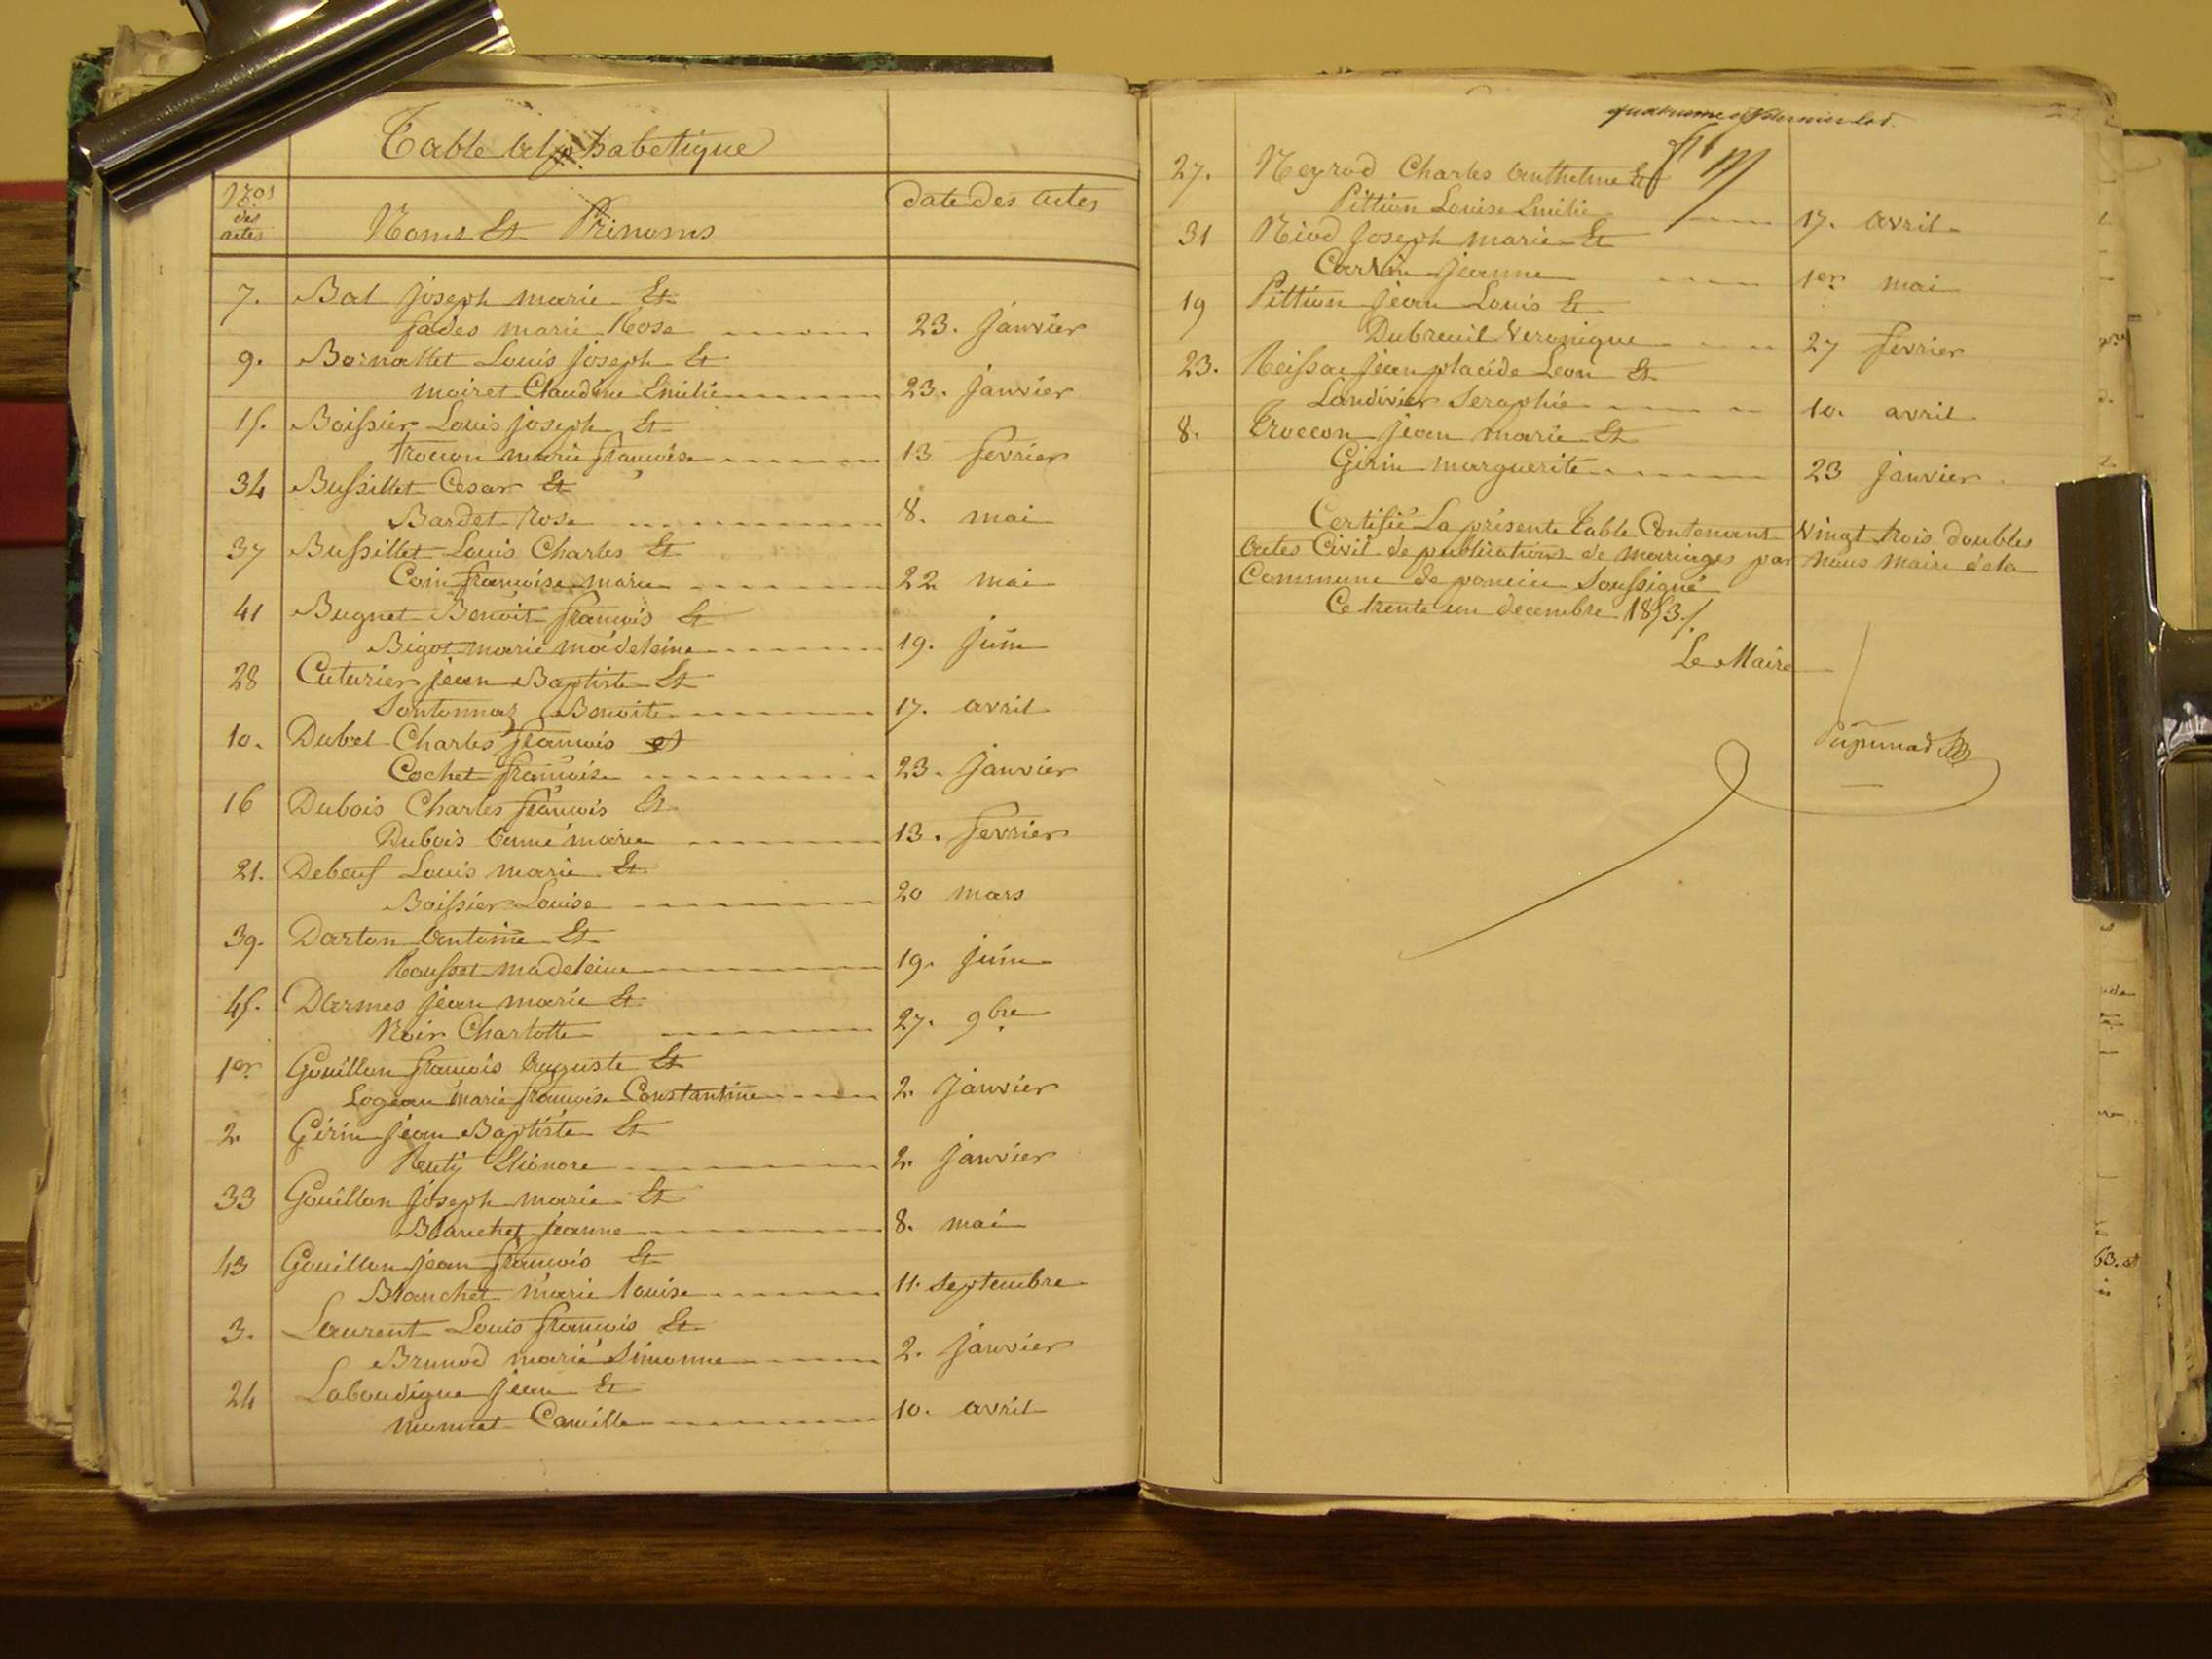 Table alphabetique
Nos des actes
Noms Et Prénoms
date des actes
7. Bal joseph marie Et
fades marie Rose 23. janvier
9. Bornallet Louis joseph Et
moiret Claudine Emilie 23. janvier
15. Boissier Louis joseph Et
trocon marie françoise 13 fevrier
34 Bussillet Cesar Et
Bardet Rose 8. mai
37 Bussillet Louis Charles Et
Coin françoise marie 22 mai
41 Bugnet Benoit françois Et
Bigot marie madeleine 19. juin
28 Cuturier jean Baptiste Et
Santonnaz Benoite 17. avril
10. Dubel Charles françois et
Cochet françoise 23. janvier
16 Dubois Charles françois Et
Dubois anne marie 13. fevrier
21. Debeuf Louis marie Et
Boissier Louise 20 mars
39. Darton antoine Et
Rousset madeleine 19. juin
45. Darmes jean marie Et
Noir Charlotte 27. 9bre
1er Gouillon françois auguste Et
Logeau marie françoise Constantine 2 janvier
2 Girin jean Baptiste Et
Reuty Eléonore 2 janvier
33 Gouillon joseph marie Et
Blanchet jeanne 8. mai
43 Gouillon jean françois Et
Blanchet marie louise 11. septembre
3. Laurent Louis françois Et
Brunod marie Simonne 2. janvier
24 Laboudigue jean Et
monnet Camille 10. avril
27. Neyrod Charles anthelme Et
Pittion Louise Emilie 17. avril
31 Niod joseph marie Et
Carrin jeanne 1er mai
19 Pittion jean Louis Et
Dubreuil Veronique 27 fevrier
23. Reissac jean placide Leon Et
Landivier Seraphie 10. avril
8. Troccon jean marie Et
Girin marguerite 23 janvier
Certifié La présente table Contenant Vingt trois doubles
actes Civil de publications de mariages par nous maire de la
Commune de poncin Soussigné
Ce trente un decembre 1853.
Le Maire